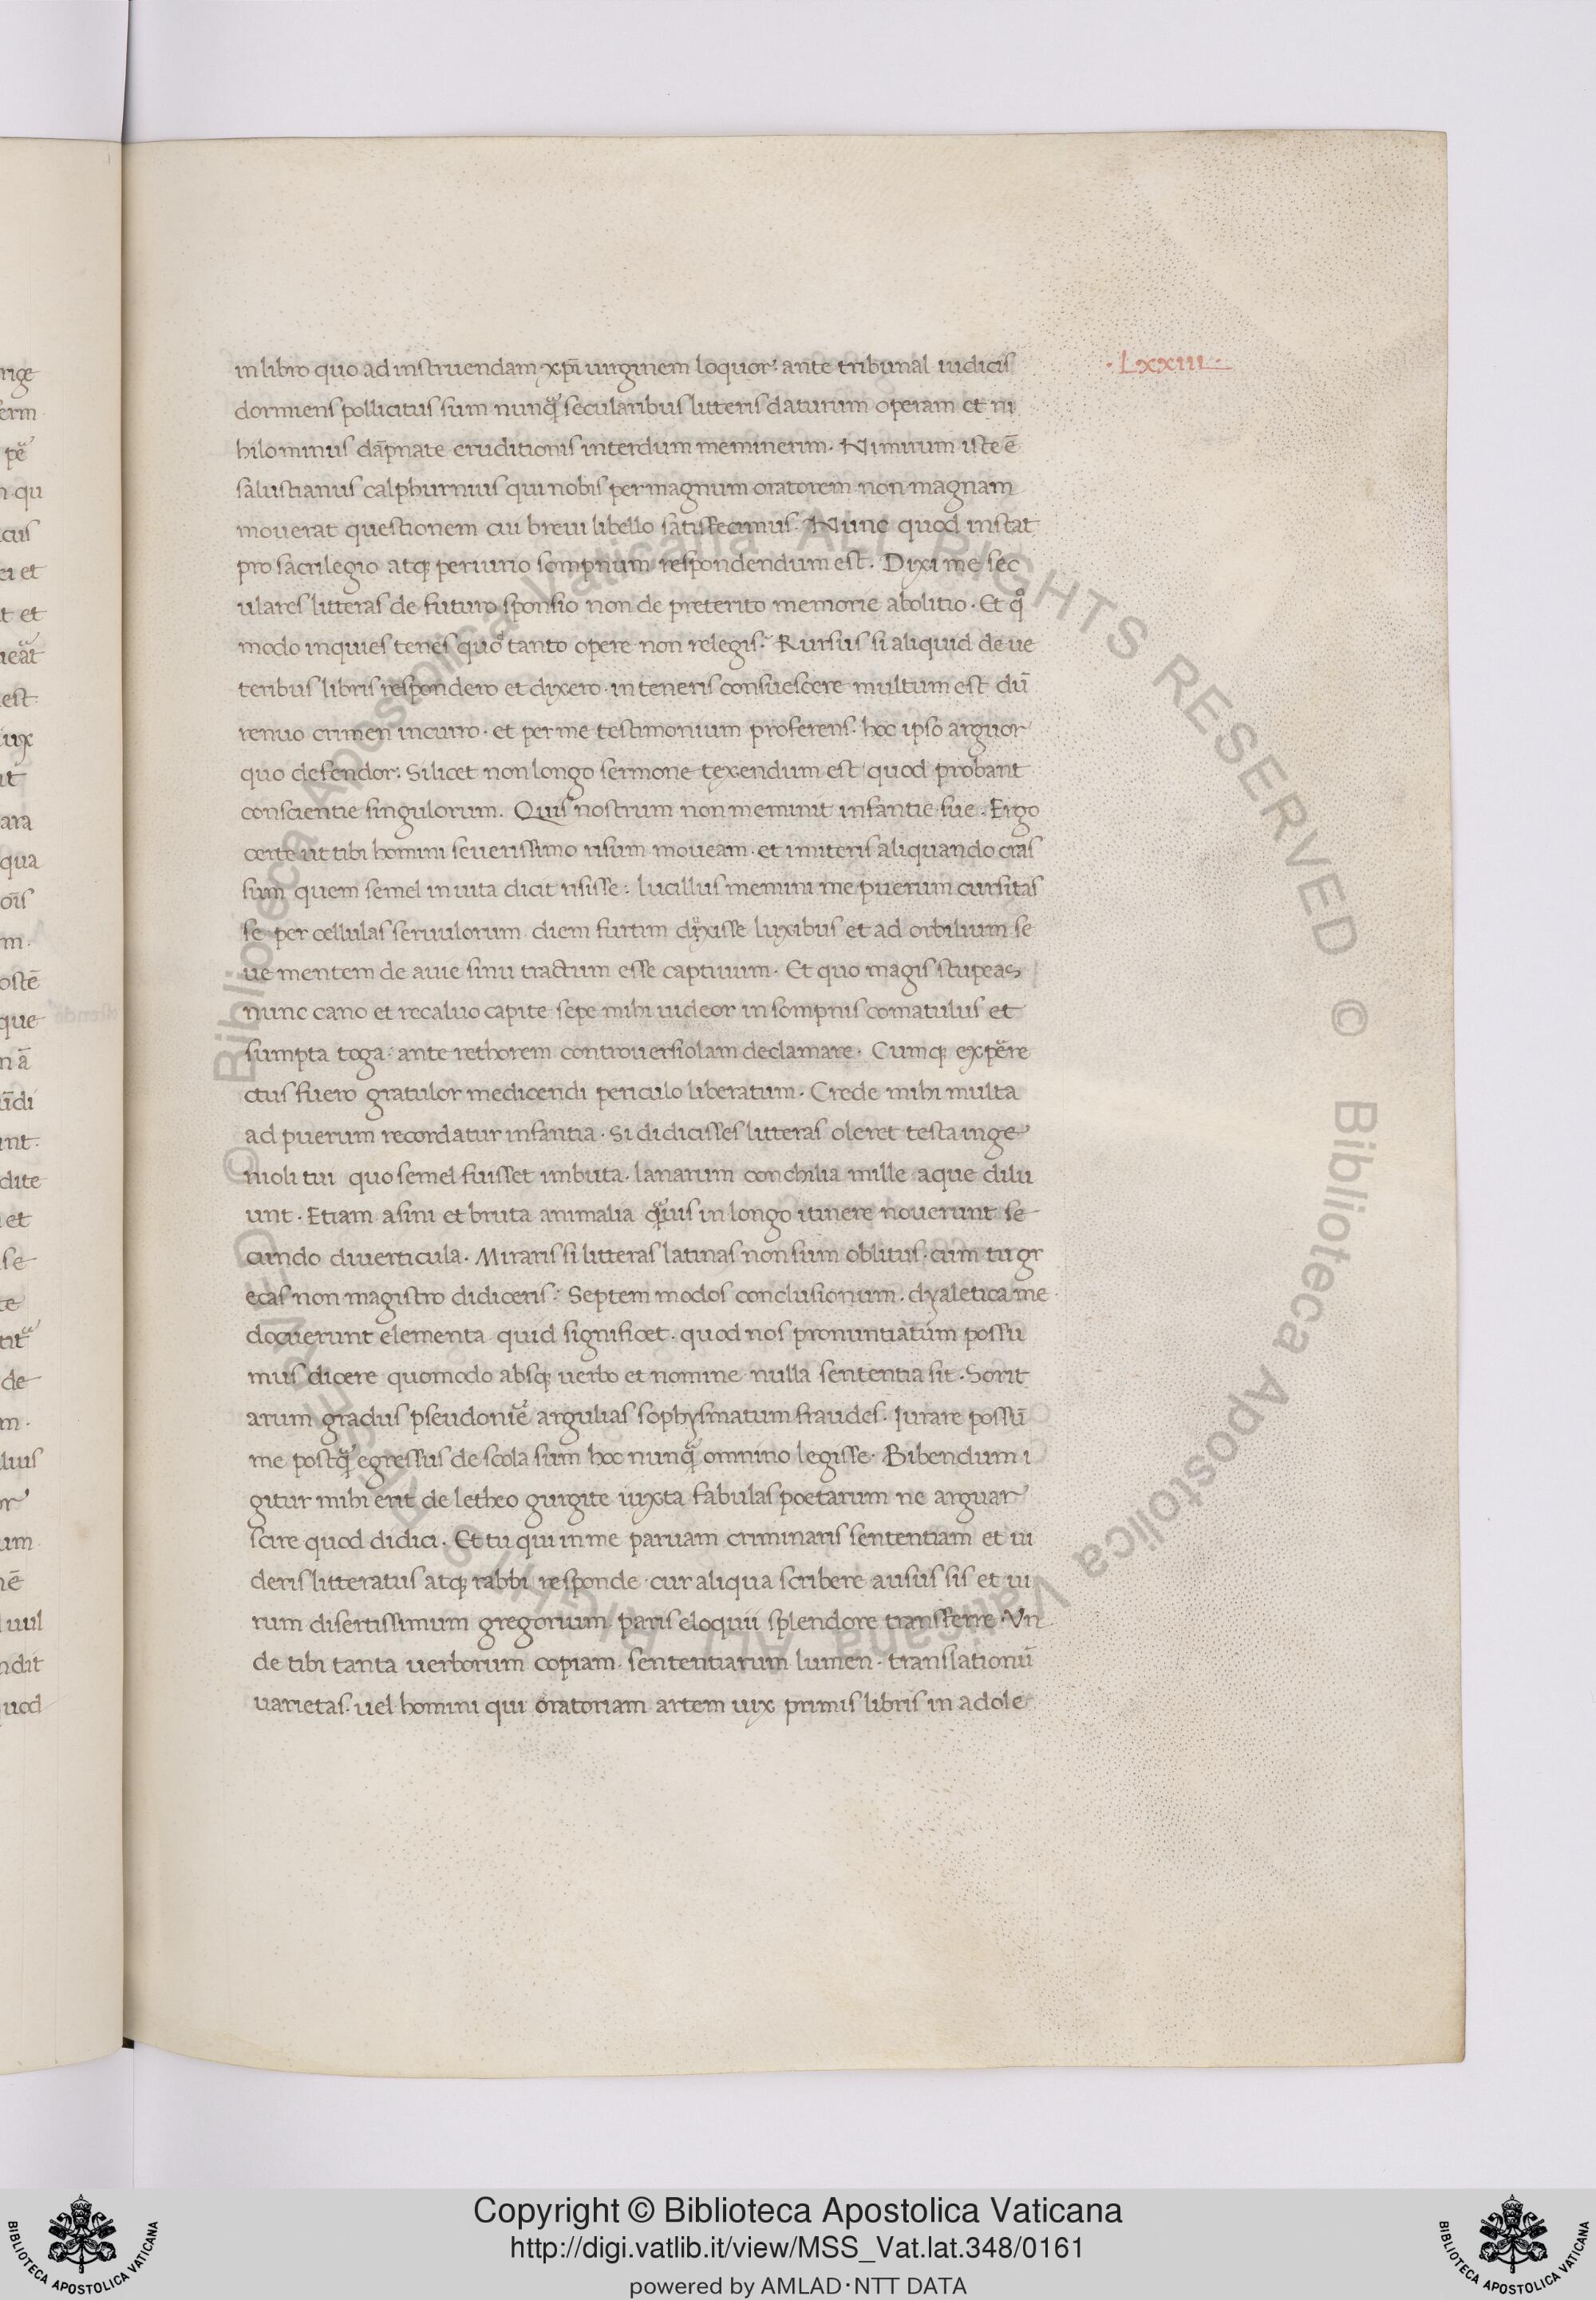 in libro quo ad instruendam xp̄i uirginem loquor· ante tribunal iudicis
·Lxxiii·
dormiens pollicitus sum nunq̃ secularibus litteris daturum operam et ni
hilominus dāpnate eruditionis interdum meminerim. Nimirum iste ē
salustianus calphurnius qui nobis per magnum oratorem non magnam
mouerat questionem cui breui libello satisfecimus. Nunc quod instat
pro sacrilegio atq; periurio sompnum respondendum est. Dixi me sec
ulares litteras de futuro sponsio non de preterito memorie abolitio. Et qͦ
modo inquies tenes quoͩ tanto opere non relegis? Rursus si aliquid de ue
teribus libris respondero et dixero· in teneris consuescere multum est dū
renuo crimen incurro· et per me testimonium proferens· hoc ipso arguor
quo defendor: Silicet non longo sermone texendum est quod probant
conscientie singulorum. Quis nostrum non meminit infantie sue. Ergo
certe ut tibi homini seuerissimo risum moueam· et imiteris aliquando cras
sum quem semel in uita dicit risisse: lucillus memini me puerum cursitas
se per cellulas seruulorum diem furtim duxisse luxibus et ad orbilium se
ue mentem de auie sinu tractum esse captiuum. Et quo magis stupeas
nunc cano et recaluo capite sepe mihi uideor in sompnis comatulus et
sumpta toga· ante rethorem controuersiolam declamare. Cumq; expere
ctus fuero gratulor me dicendi periculo liberatum. Crede mihi multa
ad puerum recordatur infantia. Si didicisses litteras oleret testa inge
nioli tui quo semel fuisset imbuta. lanarum conchilia mille aque dilu
unt. Etiam asini et bruta animalia q̃uis in longo itinere nouerunt se
cundo diuerticula. Miraris si litteras latinas non sum oblitus· cum tu gr
ecas non magistro didiceris? Septem modos conclusionum· dyaletica me
docuerunt elementa quid significet· quod nos pronuntiatum possu
mus dicere quomodo absq; uerbo et nomine nulla sententia sit. Sorit
arum gradus pseudoniē argulias sophysmatum fraudes. Iurare possū
me postq̃ egressus de scola sum hoc nunq̃ omnino legisse. Bibendum i
gitur mihi erit de letheo gurgite iuxta fabulas poetarum ne arguar
scire quod didici. Et tu qui in me paruam criminaris sententiam et ui
deris litteratus atq; rabbi responde· cur aliqua scribere ausus sis et ui
rum disertissimum gregorium paris eloquii splendore transferre. Vn
de tibi tanta uerborum copiam· sententiarum lumen· translationū
uarietas· uel homini qui oratoriam artem uix primis libris in adole
Copyright © Biblioteca Apostolica Vaticana
http://digi.vatlib.it/view/MSS_Vat.lat.348/0161
powered by AMLAD·NTT DATA